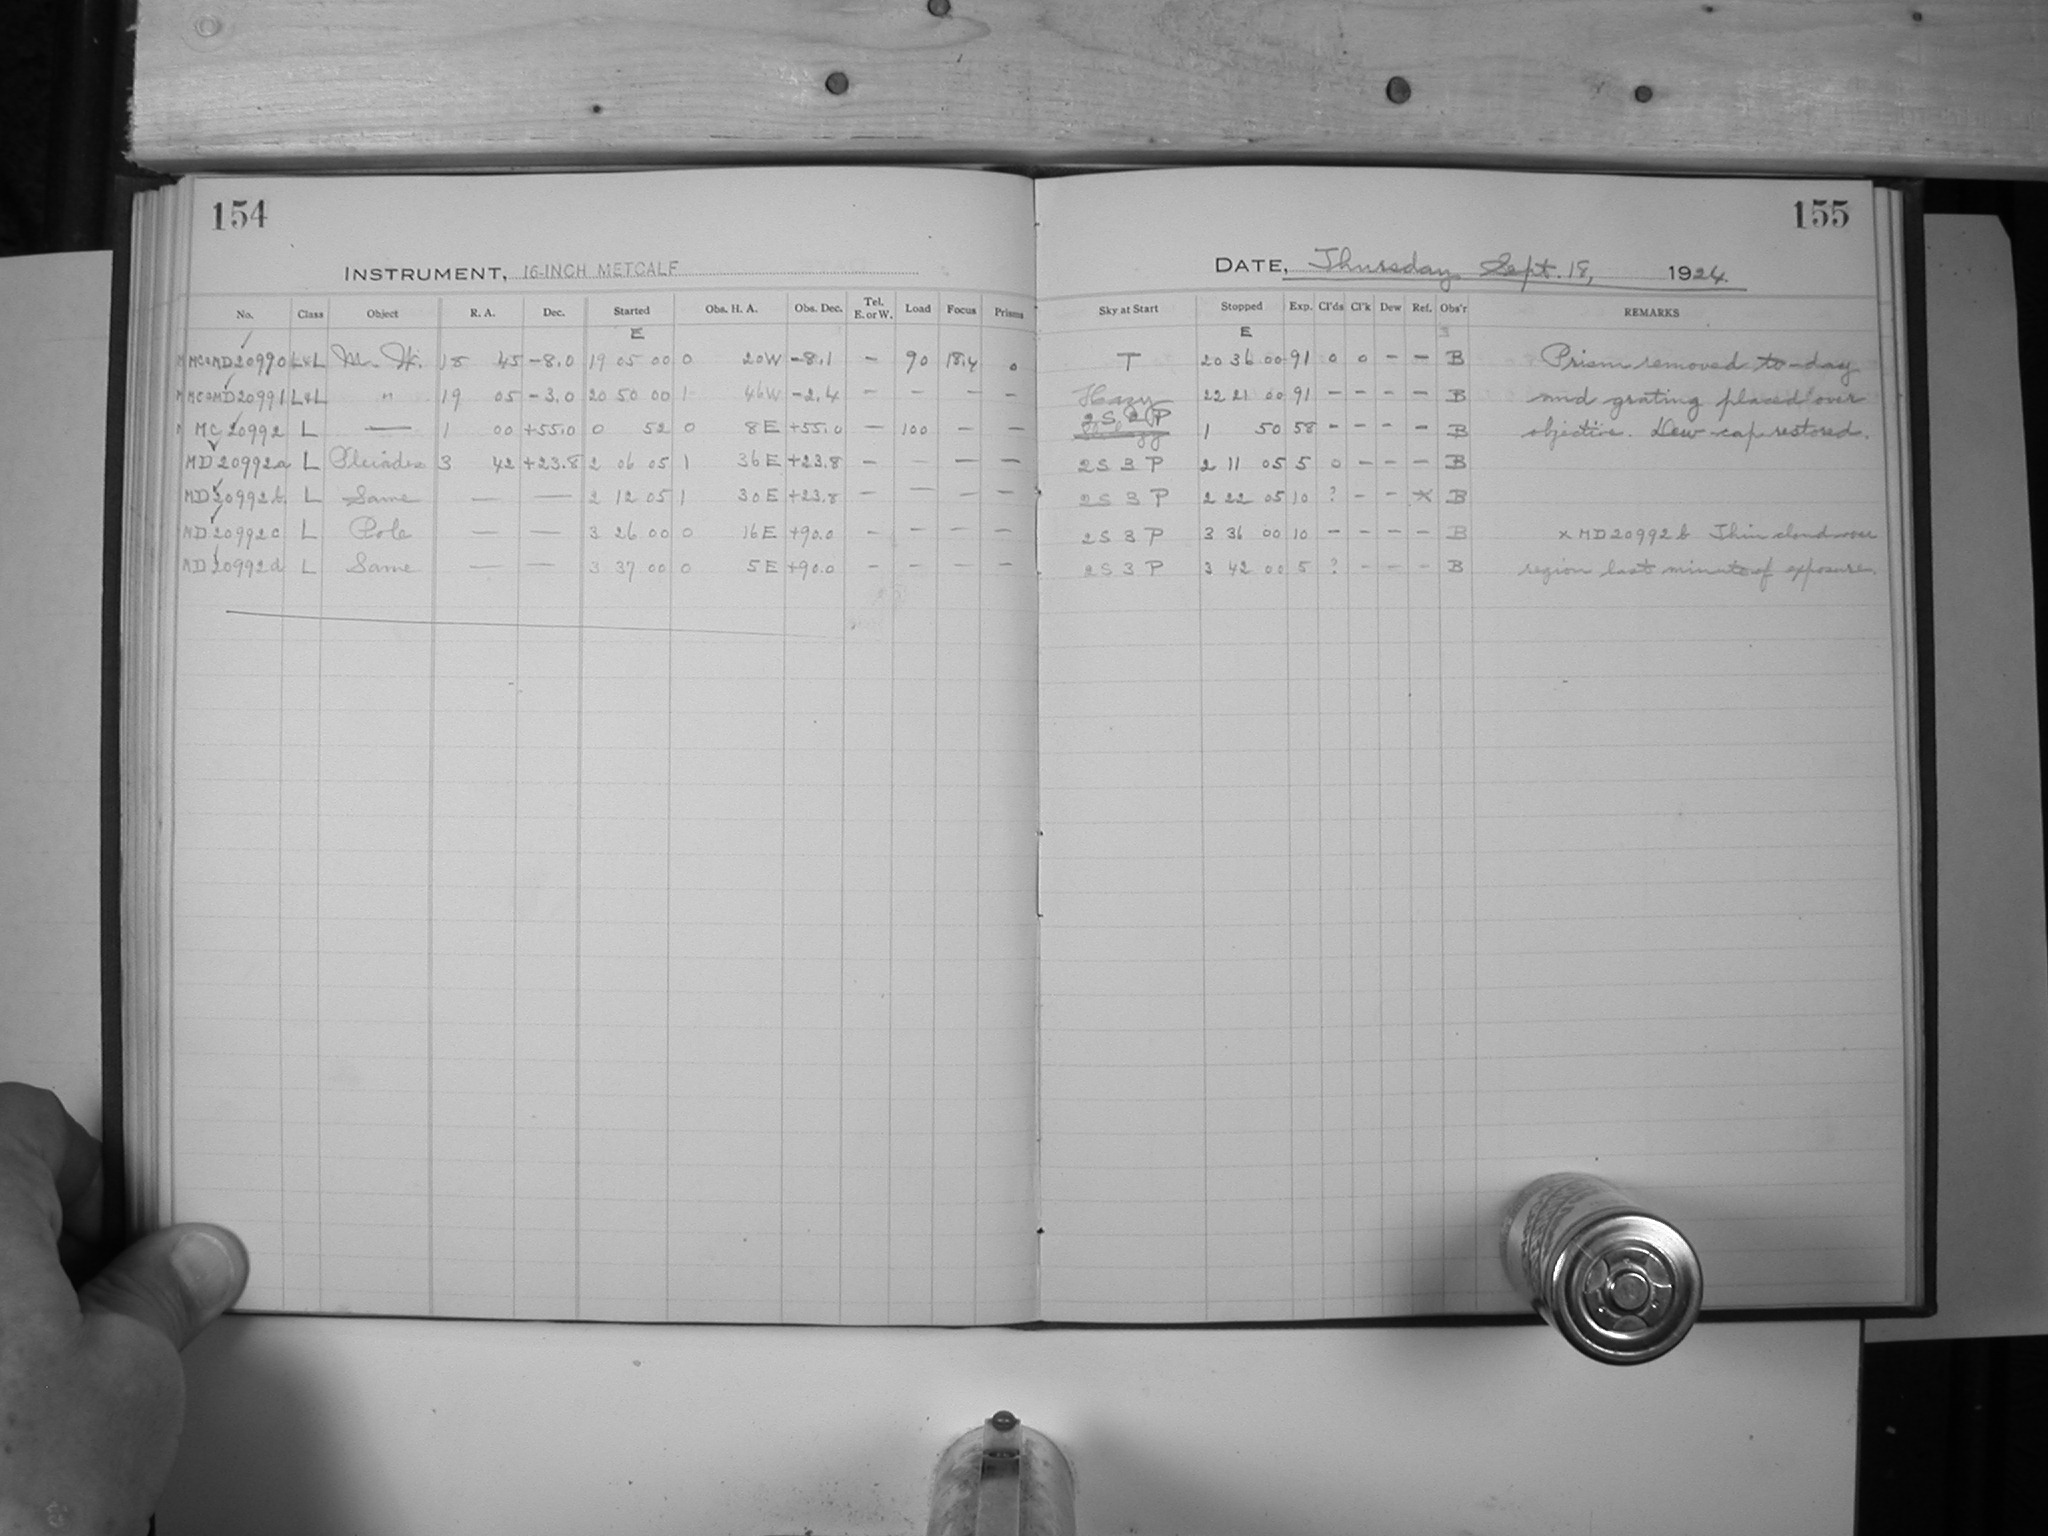 154
155
INSTRUMENT, 16-INCH METCALF
DATE, Thursday Sept. 18, 1924.
No. Class Object R. A. Dec. Started Obs. H. A. Obs. Dec. Tel. E. or W. Load Focus Prisms Sky at Start Stopped Exp. Cl'ds Cl'k Dew Ref. Obs'r REMARKS
E E
MC&MD20990 L&L M. W. 18 45 -8.0 19 05 00 0 20W -8.1 - 90 18.4 0 T 20 36 00 91 0 0 - - B Prism removed to-day
MC&MD20991 L&L " 19 05 -3.0 20 50 00 1 46W -2.4 - - - - Hazy 22 21 00 91 - - - - B and grating placed over
MC 20992 L — 1 00 +55.0 0 52 0 8E +55.0 - 100 - - 2 S 2 P 1 50 58 - - - - B objective. Dew-cap restored.
MD20992a L Pleiades 3 42 +23.8 2 06 05 1 36E +23.8 - - - - 2 S 3 P 2 11 05 5 0 - - - B
MD20992b L Same — — 2 12 05 1 30E +23.8 - - - - 2 S 3 P 2 22 05 10 ? - - x B
MD20992c L Pole — — 3 26 00 0 16E +90.0 - - - - 2 S 3 P 3 36 00 10 - - - - B x MD20992b Thin cloud over
MD20992d L Same — — 3 37 00 0 5E +90.0 - - - - 2 S 3 P 3 42 00 5 ? - - - B region last minute of exposure.